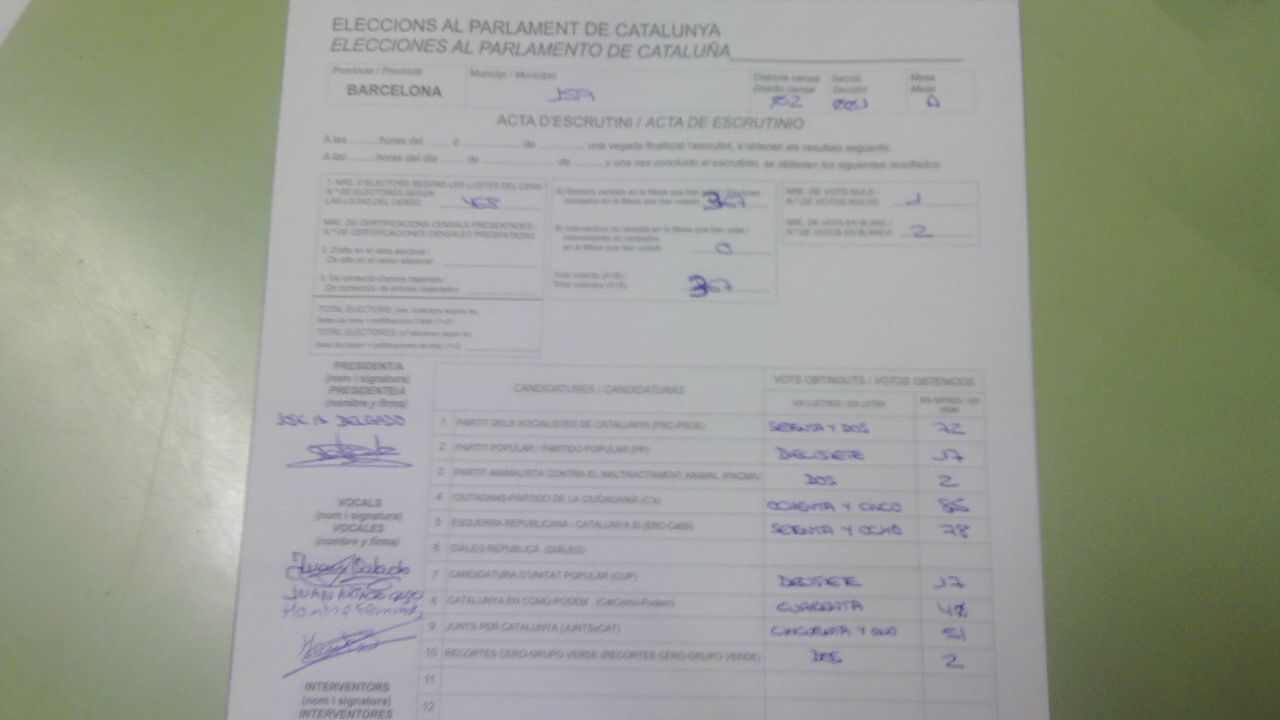 ELECCIONS AL PARLAMENT DE CATALUNYA
ELECCIONES AL PARLAMENTO DE CATALUÑA
Província / Provincia
Municipi / Municipio
Districte censal
Distrito censal
Secció
Sección
Mesa
Mesa
BARCELONA
052
001
A
ACTA D'ESCRUTINI / ACTA DE ESCRUTINIO
A les hores del d de , una vegada finalitzat l'escrutini, s'obtenen els resultats següents:
A las horas del día de de , y una vez concluido el escrutinio, se obtienen los siguientes resultados:
1. NRE. D'ELECTORS SEGONS LES LLISTES DEL CENS /
N.º DE ELECTORES SEGÚN
LAS LISTAS DEL CENSO 468
NRE. DE CERTIFICACIONS CENSALS PRESENTADES /
N.º DE CERTIFICACIONES CENSALES PRESENTADAS
2. D'alta en el cens electoral:
De alta en el censo electoral:
3. De correcció d'errors materials:
De corrección de errores materiales:
A) Electors censats en la Mesa que han
censados en la Mesa que han votado 367
en la Mesa que han votado 0
Total votants (A+B) /
Total votantes (A+B) 367
NRE. DE VOTS NULS /
N.º DE VOTOS NULOS 1
NRE. DE VOTS EN BLANC /
N.º DE VOTOS EN BLANCO 2
TOTAL ELECTORS:
TOTAL ELECTORES:
PRESIDENT/A
(nom i signatura)
PRESIDENTE/A
(nombre y firma)
DELGADO
VOCALS
(nom i signatura)
VOCALES
(nombre y firma)
INTERVENTORS
(nom i signatura)
INTERVENTORES
CANDIDATURES / CANDIDATURAS
VOTS OBTINGUTS / VOTOS OBTENIDOS
EN LLETRES / EN LETRA
1 PARTIT DELS SOCIALISTES DE CATALUNYA (PSC-PSOE) SETENTA Y DOS 72
2 PARTIT POPULAR / PARTIDO POPULAR (PP) DECISIETE 17
3 PARTIT ANIMALISTA CONTRA EL MALTRACTAMENT ANIMAL (PACMA) DOS 2
4 CIUTADANS-PARTIDO DE LA CIUDADANÍA (C's) OCHENTA Y CINCO 85
5 ESQUERRA REPUBLICANA - CATALUNYA SÍ (ERC-CatSí) SETENTA Y OCHO 78
6 DIÀLEG REPUBLICÀ (DIÀLEG)
7 CANDIDATURA D'UNITAT POPULAR (CUP) DECISIETE 17
8 CATALUNYA EN COMÚ-PODEM (CatComú-Podem) CUARENTA 40
9 JUNTS PER CATALUNYA (JUNTSxCAT) CINCUENTA Y UNO 51
10 RECORTES CERO-GRUPO VERDE (RECORTES CERO-GRUPO VERDE) DOS 2
11
12